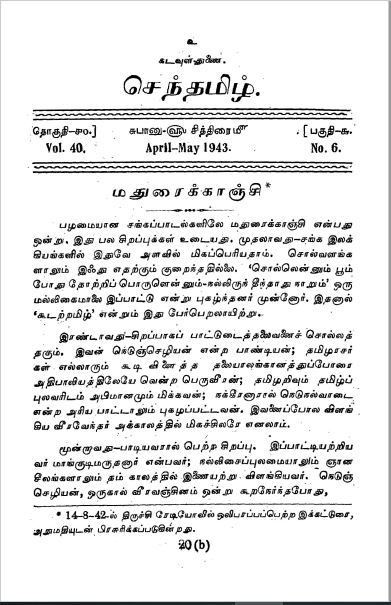 உ
கடவுள் துணை.
செந்தமிழ்.
தொகுதி-௪௦.] சுபானு-௵ சித்திரை௴ [பகுதி-௬.
Vol. 40. April-May 1943. No. 6.
மதுரைக்காஞ்சி*
பழமையான சங்கப்பாடல்களிலே மதுரைக்காஞ்சி என்பது
ஒன்று. இது பல சிறப்புக்கள் உடையது. முதலாவது-சங்க இலக்
கியங்களில் இதுவே அளவில் மிகப்பெரியதாம். சொல்வளங்க
ளாலும் இஃது எதற்கும் குறைந்ததில்லை. 'சொல்லென்னும் பூம்
போது தோற்றிப் பொருளென்னும்-நல்லிருந் தீந்தாது நாறும்' ஒரு
மல்லிகைமாலை இப்பாட்டு என்று புகழ்ந்தனர் முன்னோர். இதனால்
'கூடற்றமிழ்' என்னும் இது பேர்பெறலாயிற்று.
இரண்டாவது-சிறப்பாகப் பாட்டுடைத்தலைவனைச் சொல்லத்
தகும். இவன் நெடுஞ்செழியன் என்ற பாண்டியன்; தமிழரசர்
கள் எல்லாரும் கூடி விளைத்த தலையாலங்கானத்துப்போரை
அதிபாலியத்திலேயே வென்ற பெருவீரன்; தமிழறிவும் தமிழ்ப்
புலவரிடம் அபிமானமும் மிக்கவன்; நக்கீரனாரால் நெடுநல்வாடை
என்ற அரிய பாட்டாலும் புகழப்பட்டவன். இவனைப்போல விளங்
கிய வீரவேந்தர் அக்காலத்தில் மிகச்சிலரே எனலாம்.
மூன்றாவது-பாடியவரால் பெற்ற சிறப்பு. இப்பாட்டியற்றிய
வர் மாங்குடிமருதனார் என்பவர்; நல்லிசைப்புலமையாலும் ஞான
சீலங்களாலும் தம் காலத்தில் இணையற்று விளங்கியவர். நெடுஞ்
செழியன், ஒருகால் வீரவஞ்சினம் ஒன்று கூறநேர்ந்தபோது,
* 14-8-42-ல் திருச்சி ரேடியோவில் ஒலிபரப்பப்பெற்ற இக்கட்டுரை,
அனுமதியுடன் பிரசுரிக்கப்படுகின்றது.
20 (b)